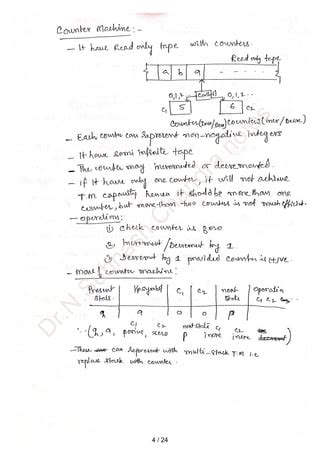 Counter Machine:-
- It have Read only tape with counters.
Read only tape
a b a - - - - -
0,1,2 Control 0,1..
C1 5 6 C2
Counter1(Incr/Decr) Counter2(Incr/Decr)
- Each counter can represent non-negative integers
- It have semi infinite tape
- The counter may incremented or decremented.
- if it have only one counter, it will not achieve
T.M capacity hence it should be more than one
counter, but more than two counters is not much
- operations:
① check counter is zero
② Increment/Decrement by 1
③ Decrement by 1 provided counter is +ve.
- move of counter machine:
Present State I/p symbol C1 C2 next State Operation C1 C2
q a 0 0 p
C1 C2 next state C1 C2
(q, a, zero p incr incr
- can represent with multi-stack T.M i.e
replace stack with counter.
4 / 24